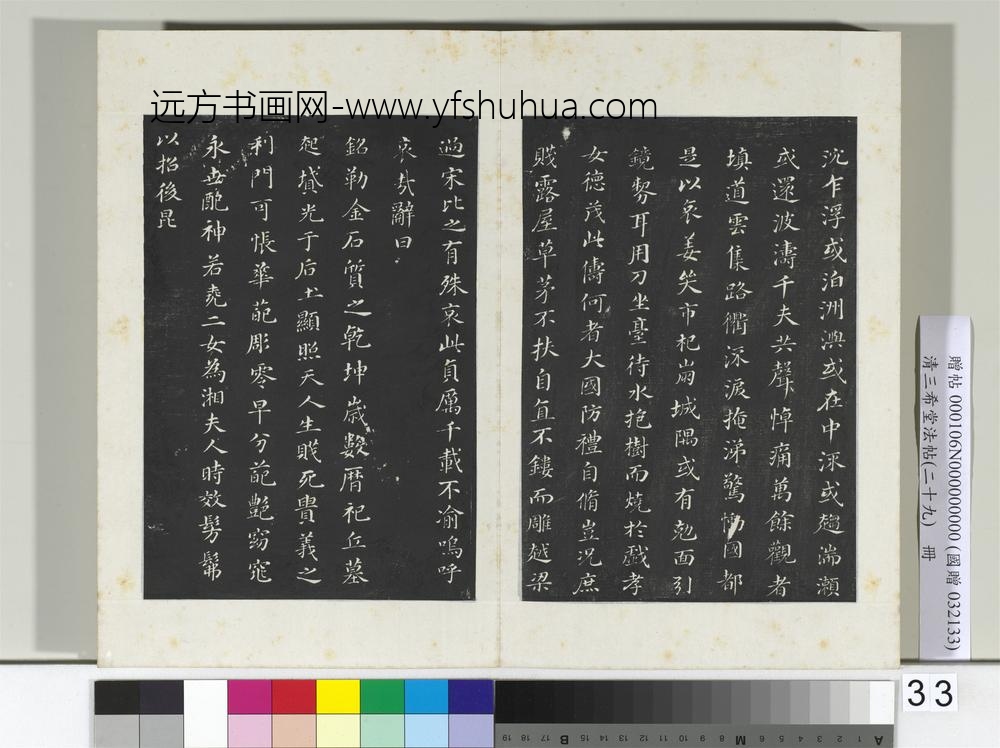 远方书画网-www.yfshuhua.com
沈乍浮或泊洲澳或在中流或趨湍瀨
或還波濤千夫共聲悼痛萬餘觀者
填道雲集路衢流淚掩涕驚慟國都
是以哀姜哭市杞崩城隅或有剋面引
鏡剺耳用刀坐臺待水抱樹而燒於戲孝
女德茂此儔何者大國防禮自脩豈況庶
賤露屋草茅不扶自直不鏤而雕越梁
過宋比之有殊哀此貞厲千載不渝嗚呼
哀哉辭曰
銘勒金石質之乾坤歲數曆祀丘墓
起墳光于后土顯照天人生賤死貴義之
利門可悵華葩彫零早分葩艷窈窕
永世配神若堯二女為湘夫人時效髣髴
以招後昆
贈帖 000106N000000000 (國贈 032133)
清三希堂法帖(二十九) 冊
33
A 1 2 3 4 5 6 M 8 9 10 11 12 13 14 15 B 17 18 19